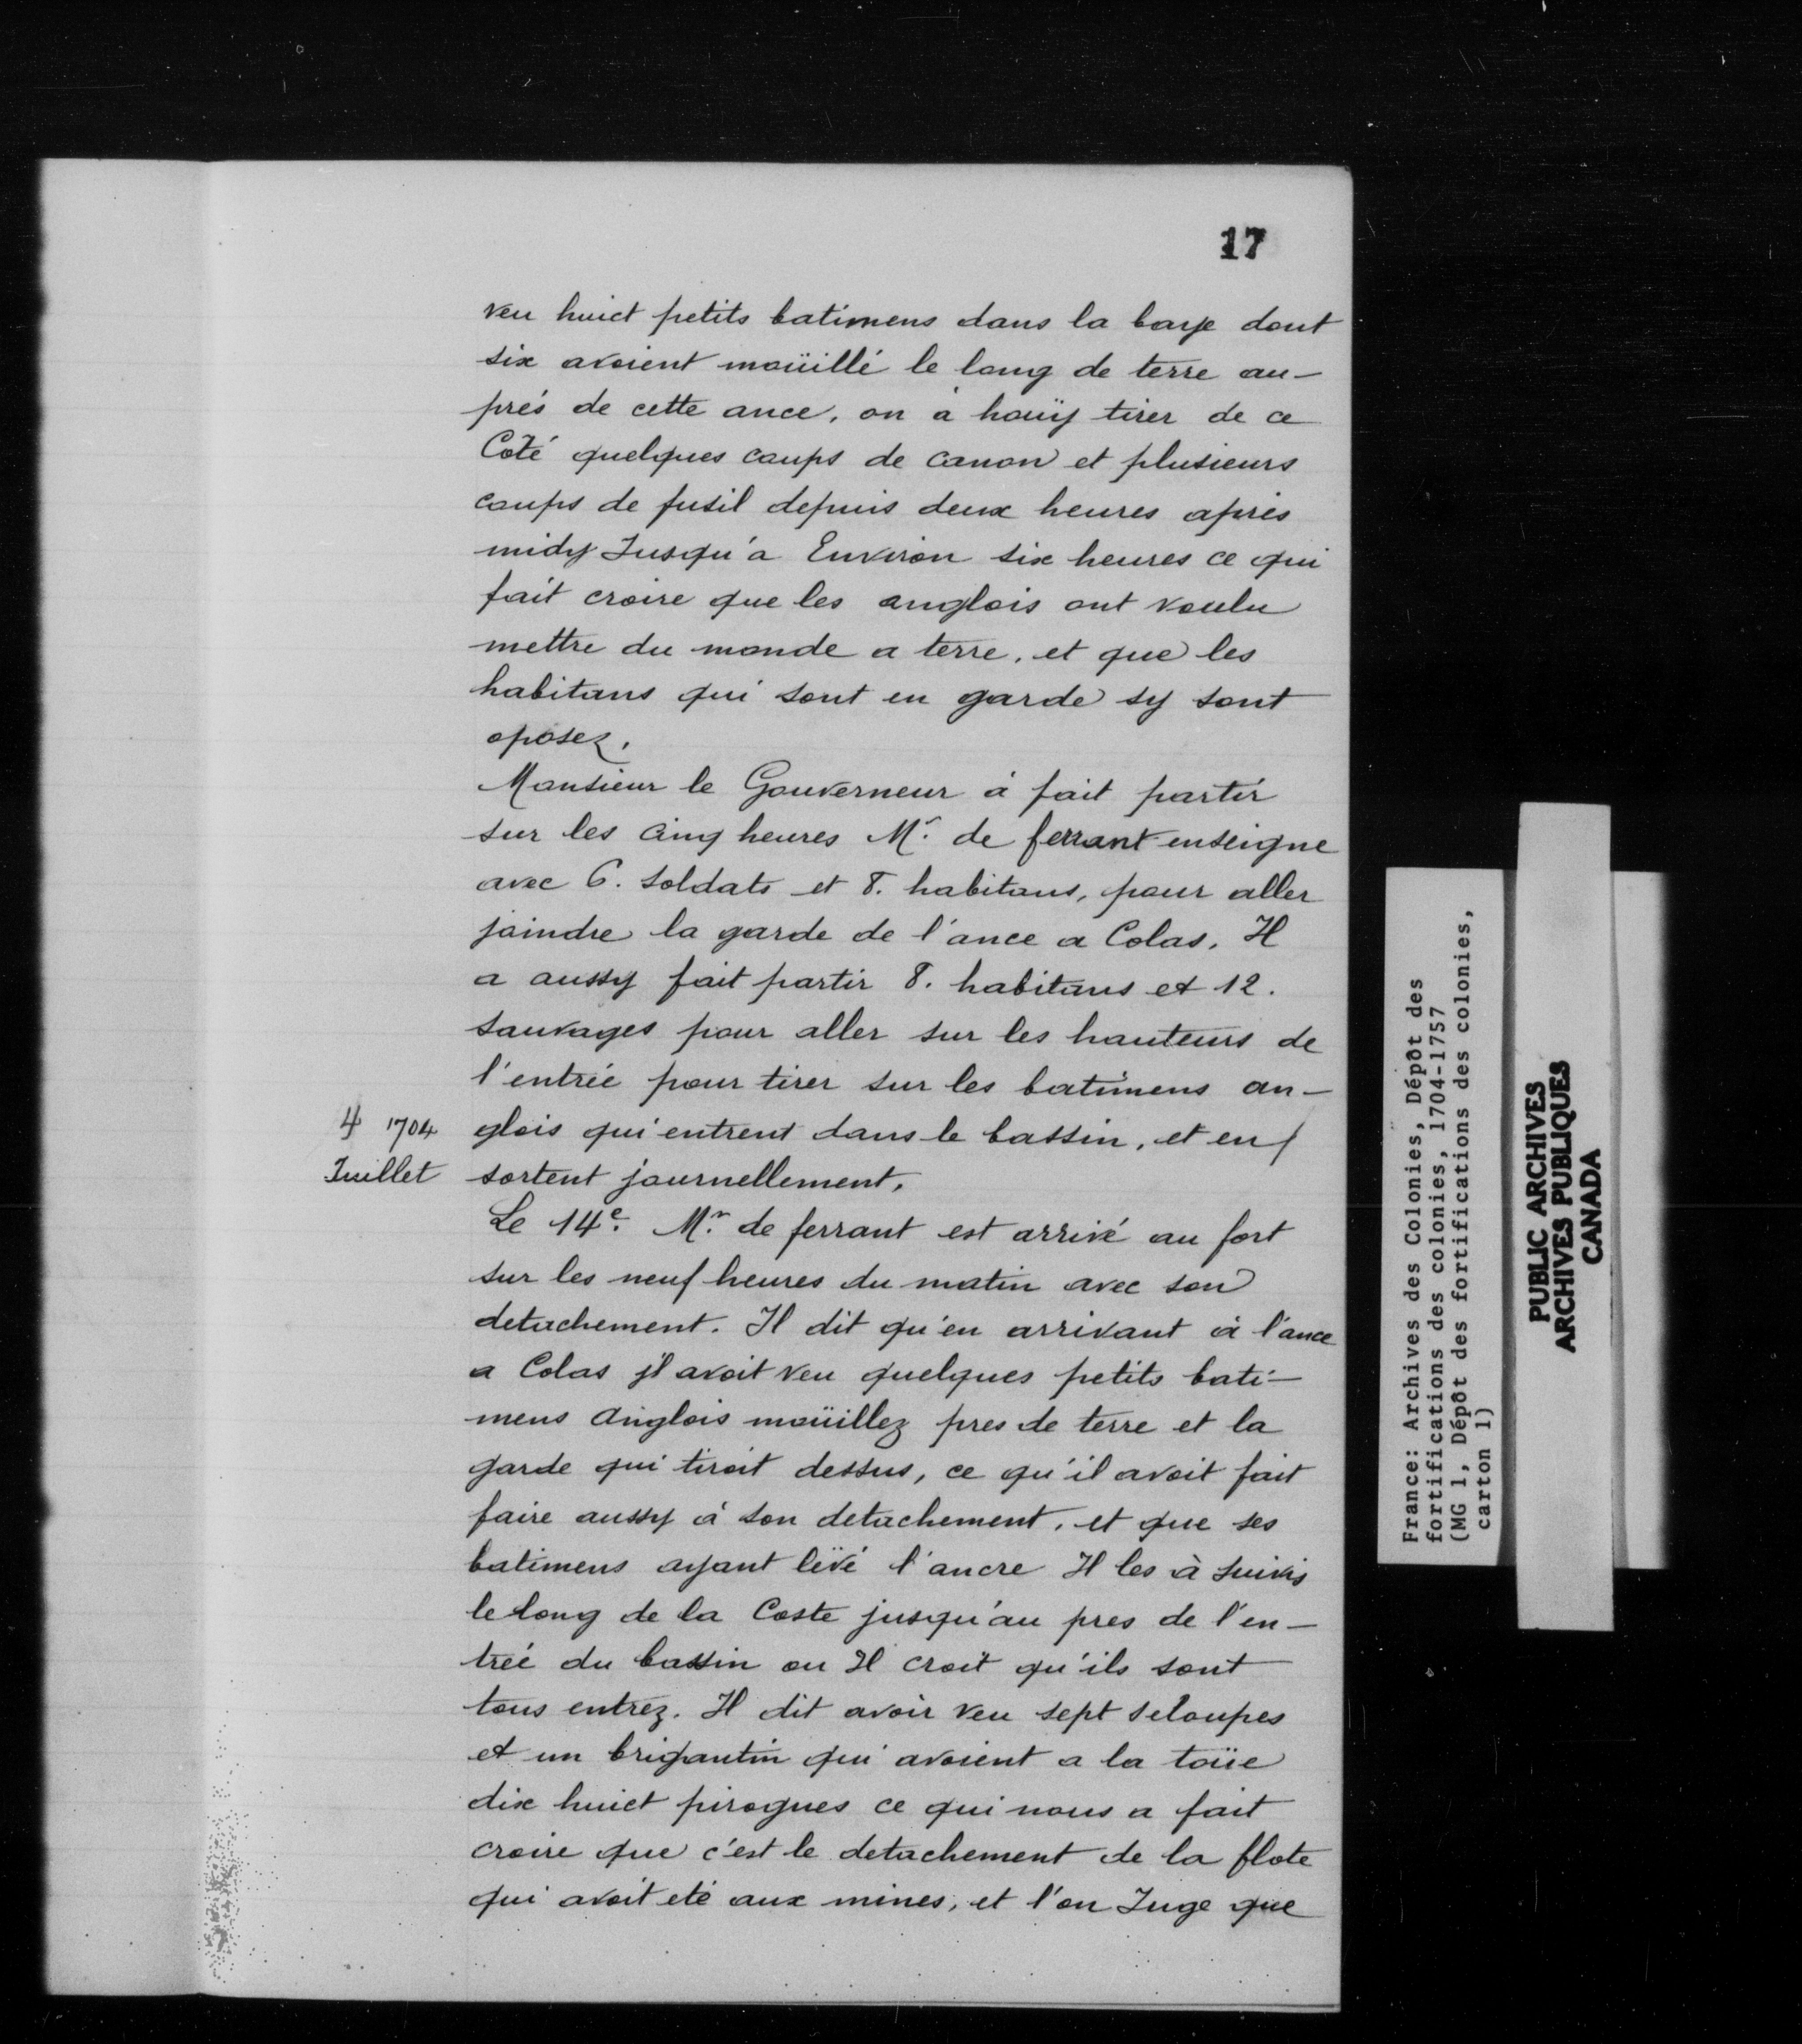 17
veu huict petits batimens dans la baye dont
six avoient moüillé le long de terre au-
prés de cette ance, on à hoüy tirer de ce
Coté quelques coups de canon et plusieurs
coups de fusil depuis deux heures aprés
midy Jusqu'a Environ six heures ce qui
fait croire que les anglois ont voulu
mettre du monde a terre, et que les
habitans qui sont en garde sy sont
oposez.
Monsieur le Gouverneur à fait partir
sur les cinq heures Mr. de ferrant enseigne
avec 6. soldats et 8. habitans, pour aller
joindre la garde de l'ance a Colas. Il
a aussy fait partir 8. habitans et 12.
sauvages pour aller sur les hauteurs de
l'entrée pour tirer sur les batimens an-
4 1704 glois qui entrent dans le bassin, et en
Juillet sortent journellement.
Le 14e. Mr. de ferrant est arrivé au fort
sur les neuf heures du matin avec son
detachement. Il dit qu'en arrivant à l'ance
a Colas jl avoit veu quelques petits bati-
mens Anglois moüillez pres de terre et la
garde qui tiroit dessus, ce qu'il avoit fait
faire aussy à son detachement, et que ses
batimens ayant levé l'ancre Il les à suivis
le long de la Coste jusqu'au pres de l'en-
trée du bassin ou Il croit qu'ils sont
tous entrez. Il dit avoir veu sept seloupes
et un brigantin qui avoient a la toüe
dix huict pirogues ce qui nous a fait
croire que c'est le detachement de la flote
qui avoit eté aux mines, et l'on Juge que
France: Archives des Colonies, Dépôt des
fortifications des colonies, 1704-1757
(MG 1, Dépôt des fortifications des colonies,
carton 1)
PUBLIC ARCHIVES
ARCHIVES PUBLIQUES
CANADA